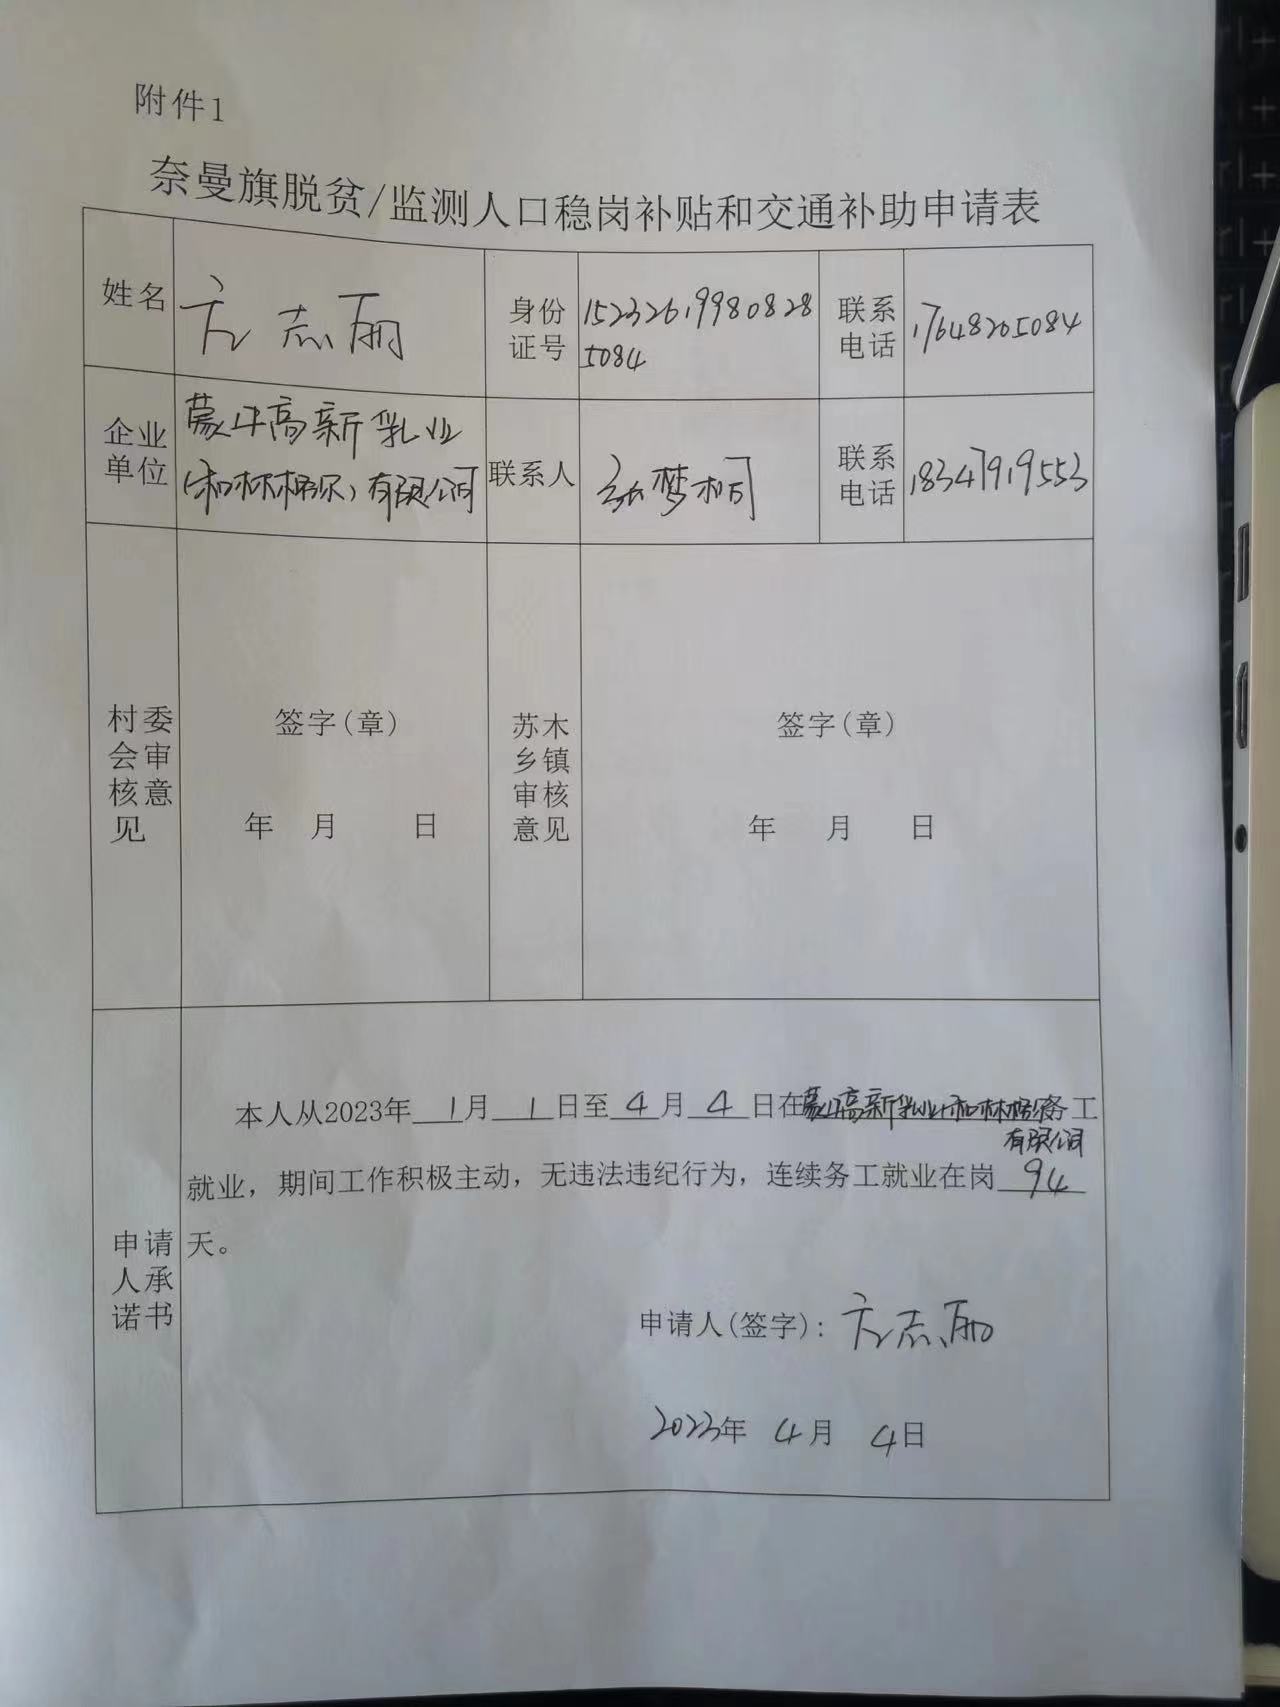 附件1
奈曼旗脱贫/监测人口稳岗补贴和交通补助申请表
姓名 方志丽 身份证号 152326199808285084 联系电话 17648205084
企业单位 蒙牛高新乳业(和林格尔)有限公司 联系人 梦柯 联系电话 18347919553
村委会审核意见 签字(章) 苏木乡镇审核意见 签字(章)
年 月 日 年 月 日
申请人承诺书
本人从2023年 1月 1日至 4月 4日在蒙牛高新乳业(和林格尔)有限公司务工
就业，期间工作积极主动，无违法违纪行为，连续务工就业在岗 94
天。
申请人(签字)：方志丽
2023年 4月 4日